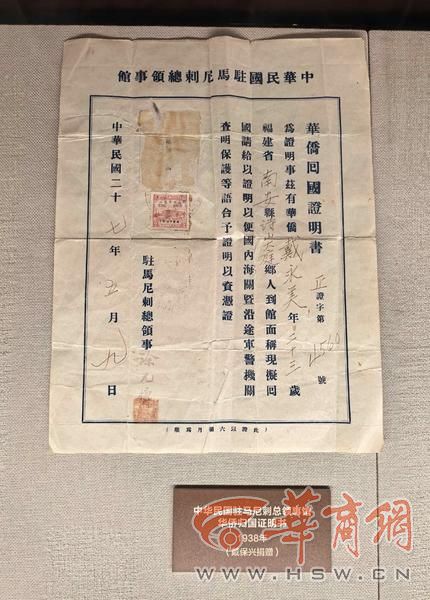 中華民國駐馬尼刺總領事館
華僑回國證明書
證字第 號
為證明事茲有華僑戴永美年三十三歲
福建省南安縣詩山鄉人到館面稱現擬回
國請給以證明以便國內海關暨沿途軍警機關
查明保護等語合予證明以資憑證
駐馬尼刺總領事
中華民國二十七年五月九日
(此證以六個月為限)
中华民国驻马尼剌总领事馆
华侨归国证明书
1938年
(戴保兴捐赠)
華商網
WWW.HSW.CN